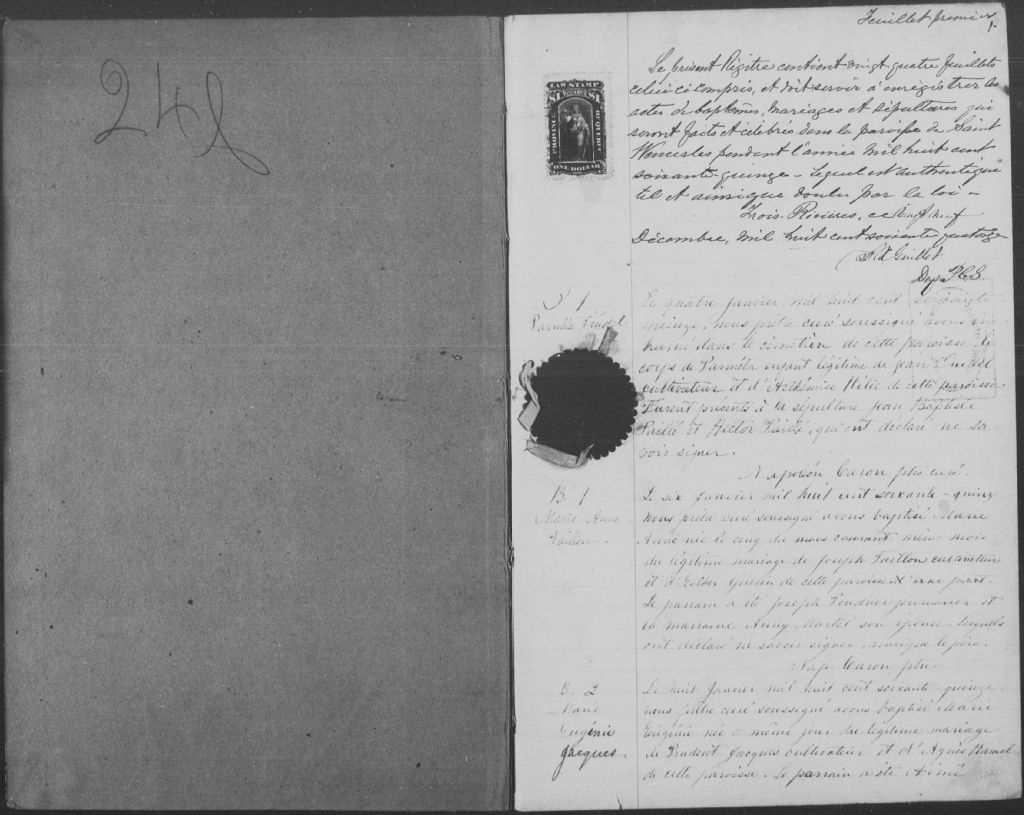 24f
Feuillet premier
1.
Le présent Régitre contient vingt quatre feuillets
celui ci compris, et doit servir à enrégistrer les
actes de baptêmes, mariages et sépultures qui
seront faits et célébrés dans la paroisse de Saint
Wenceslas pendant l'année mil huit cent
soixante-quinze - lequel est authentiqué
tel et ainsi que voulu par la loi -
Trois-Rivières, ce vingt neuf
Décembre, mil huit cent soixante quatorze
Guillet
Dep. P.C.S.
LAW STAMP
$1 $1
PROVINCE OF QUEBEC
ONE DOLLAR
S 1
Parméla Trudel
Le quatre janvier mil huit cent soixante
quinze, nous prêtre curé soussigné avons in
humé dans le cimetière de cette paroisse le
corps de Parméla enfant légitime de jean Trudel
cultivateur et d'Arthémise Hélie de cette paroisse
Furent présents à la sépulture jean Baptiste
Paillé et Hector Paillé, qui ont déclaré ne sa
voir signer.
Napoléon Caron ptre curé.
B. 1
Marie-Anne
Le six janvier mil huit cent soixante-quinze
nous prêtre curé soussigné avons baptisé Marie
Anne née le cinq du mois courant même mois
du légitime mariage de Joseph
et d'Esther de cette paroisse d'une part.
Le parrain a été Joseph journalier et
la marraine Martel son épouse lesquels
ont déclaré ne savoir signer, le père.
Nap. Caron ptre
B. 2
Marie
Eugénie
Jacques.
Le huit janvier mil huit cent soixante quinze
nous prêtre curé soussigné avons baptisé Marie
Eugénie née le même jour du légitime mariage
de Prudent Jacques cultivateur et d'Agnès Hamel
de cette paroisse. Le parrain a été Aimé